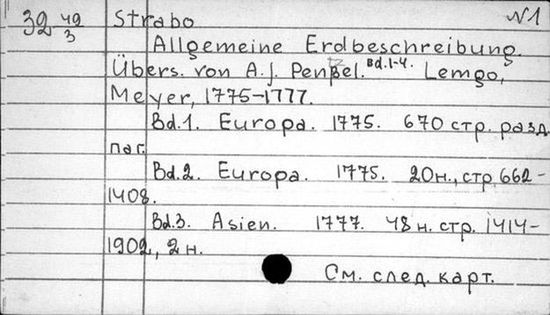 39 49/3 Strabo №1
Allgemeine Erdbeschreibung.
Übers. von A.J. Penzel. Bd.1-4. Lemgo,
Meyer, 1775-1777.
Bd.1. Europa. 1775. 670 стр. разд.
паг.
Bd.2. Europa. 1775. 20н., стр. 662-
1408.
Bd.3. Asien. 1777. 48 н. стр. 1414-
1902, 2 н.
См. след. карт.